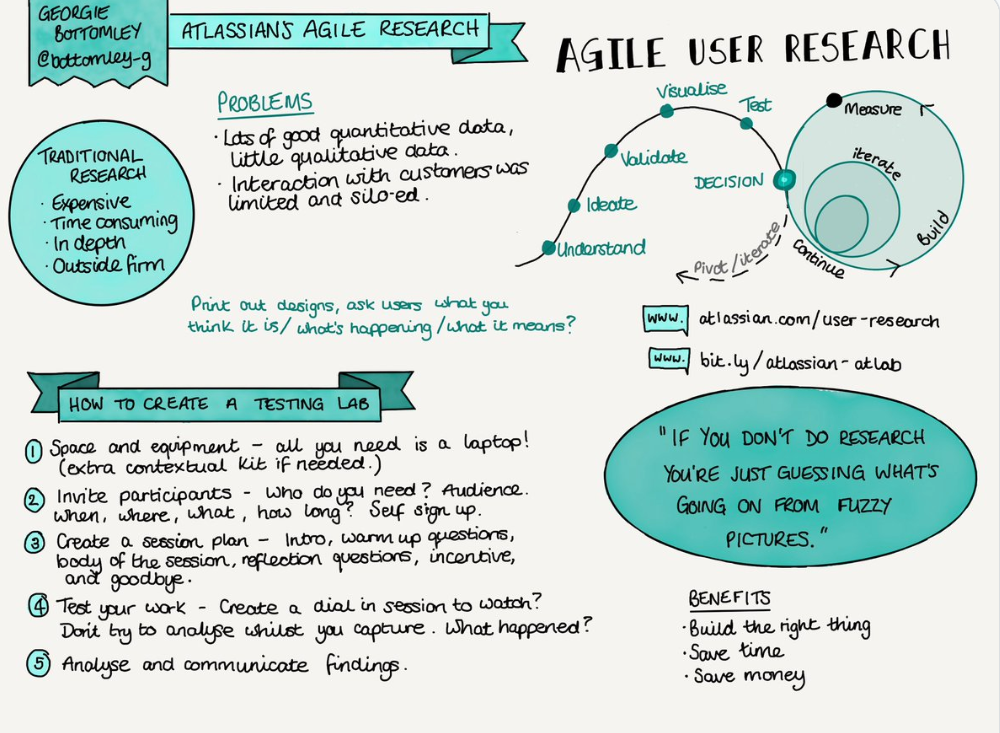 GEORGIE
BOTTOMLEY
@bottomley-g
ATLASSIAN'S AGILE RESEARCH
AGILE USER RESEARCH
PROBLEMS
· Lots of good quantitative data,
little qualitative data.
· Interaction with customers was
limited and silo-ed.
TRADITIONAL
RESEARCH
· Expensive
· Time consuming
· In depth
· Outside firm
Understand
Ideate
Validate
Visualise
Test
DECISION
Pivot/iterate
Measure
iterate
Build
Continue
Print out designs, ask users what you
think it is/ what's happening/what it means?
www. atlassian.com/user-research
www. bit.ly/atlassian-atlab
HOW TO CREATE A TESTING LAB
1 Space and equipment - all you need is a laptop!
(extra contextual kit if needed.)
2 Invite participants - Who do you need? Audience.
When, where, what, how long? Self sign up.
3 Create a session plan - Intro, warm up questions,
body of the session, reflection questions, incentive,
and goodbye.
4 Test your work - Create a dial in session to watch?
Don't try to analyse whilst you capture. What happened?
5 Analyse and communicate findings.
"IF YOU DON'T DO RESEARCH
YOU'RE JUST GUESSING WHAT'S
GOING ON FROM FUZZY
PICTURES."
BENEFITS
· Build the right thing
· Save time
· Save money